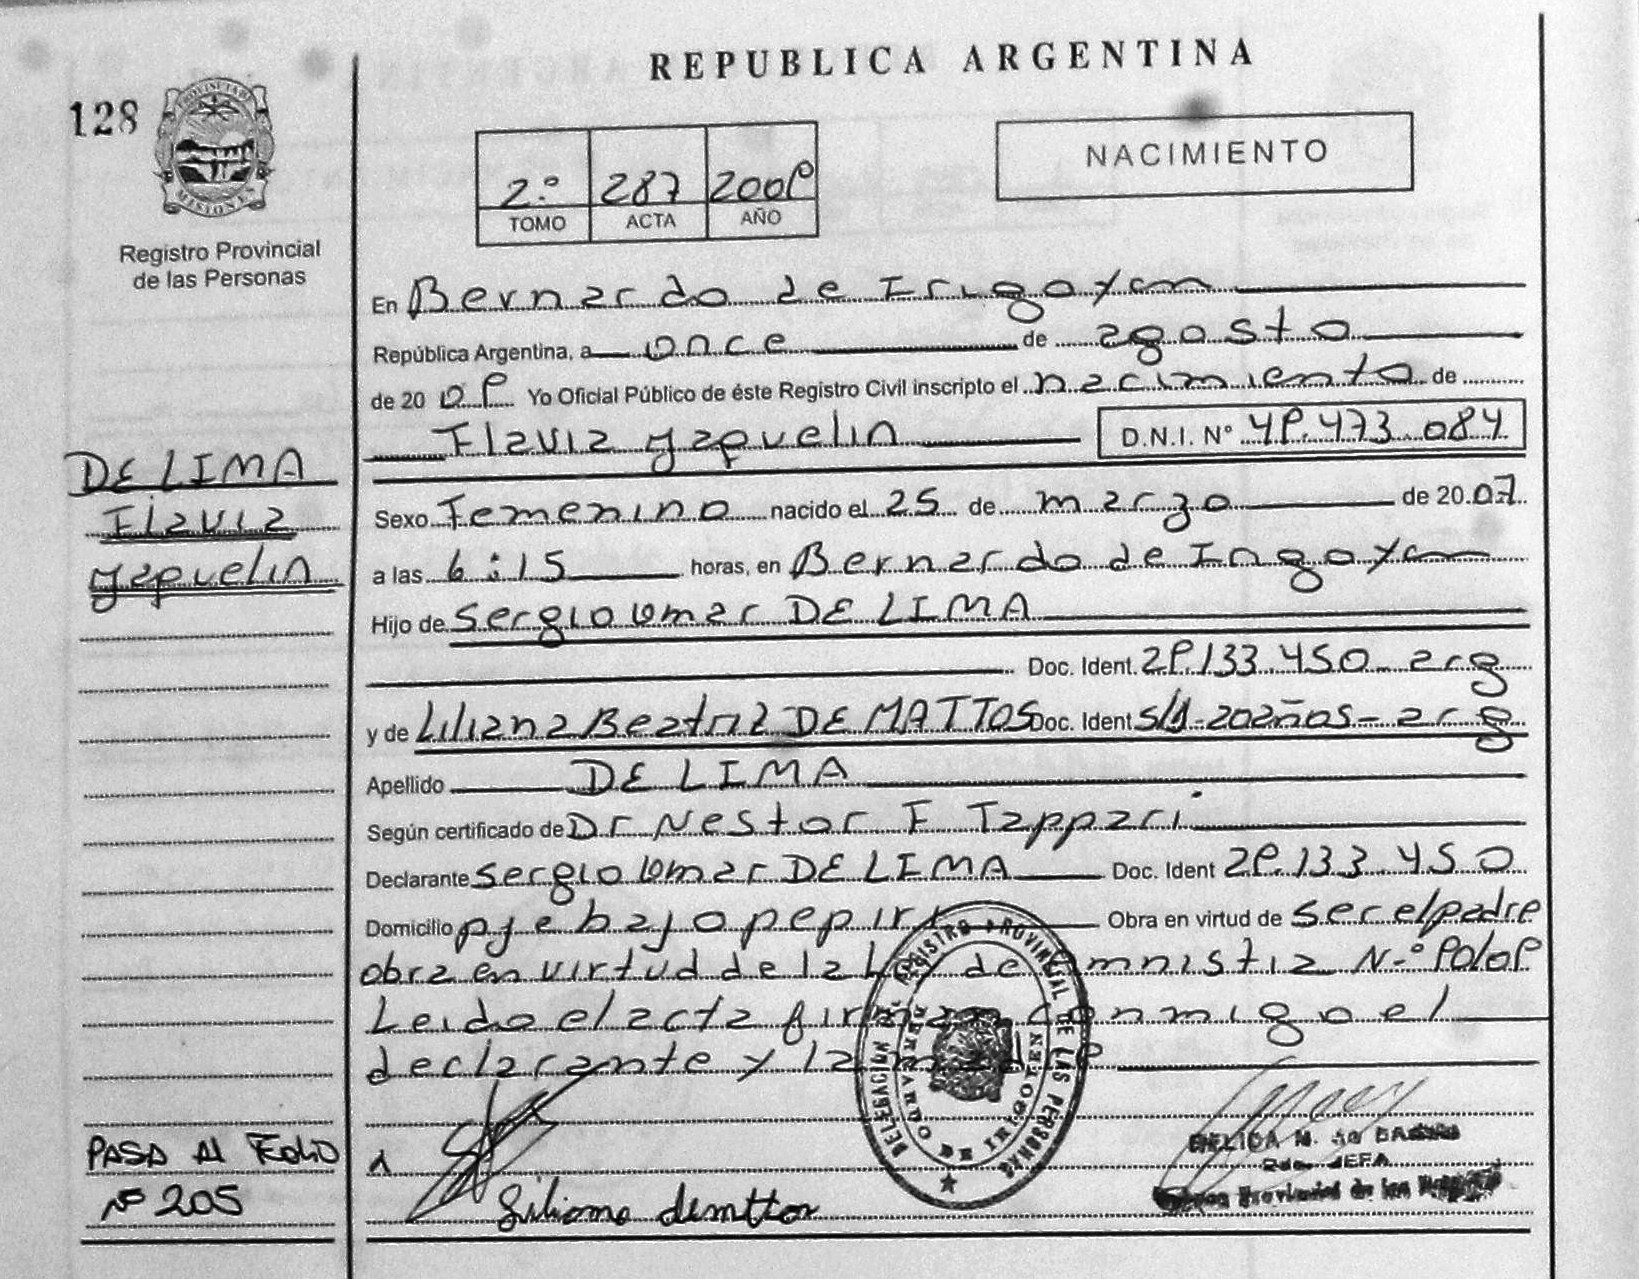 128
PROVINCIA DE
MISIONES
Registro Provincial
de las Personas
REPUBLICA ARGENTINA
2.º 287 2008
TOMO ACTA AÑO
NACIMIENTO
En Bernardo de Irigoyen
República Argentina, a once de agosto
de 20 08 Yo Oficial Público de éste Registro Civil inscripto el nacimiento de
Flavia yaquelin D.N.I. Nº 48.473.084
DE LIMA
Flavia
yaquelin
Sexo Femenino nacido el 25 de marzo de 20 07
a las 6:15 horas, en Bernardo de Irigoyen
Hijo de Sergio Omar DE LIMA
Doc. Ident. 28.133.450 - arg
y de Liliana Beatriz DE MATTOS Doc. Ident S/D - 20 años - arg
Apellido DE LIMA
Según certificado de Dr Nestor F Tappari
Declarante Sergio Omar DE LIMA Doc. Ident 28.133.450
Domicilio pje bajo pepiri Obra en virtud de Ser el padre
obra en virtud de la Ley de amnistia N-º 80/08
Leido el acta firman conmigo el
declarante y la madre
DELEGACION DEL REGISTRO PROVINCIAL DE LAS PERSONAS
BERNARDO DE IRIGOYEN
PASA AL FOLIO
Nº 205
2da. JEFA
Provincial de las